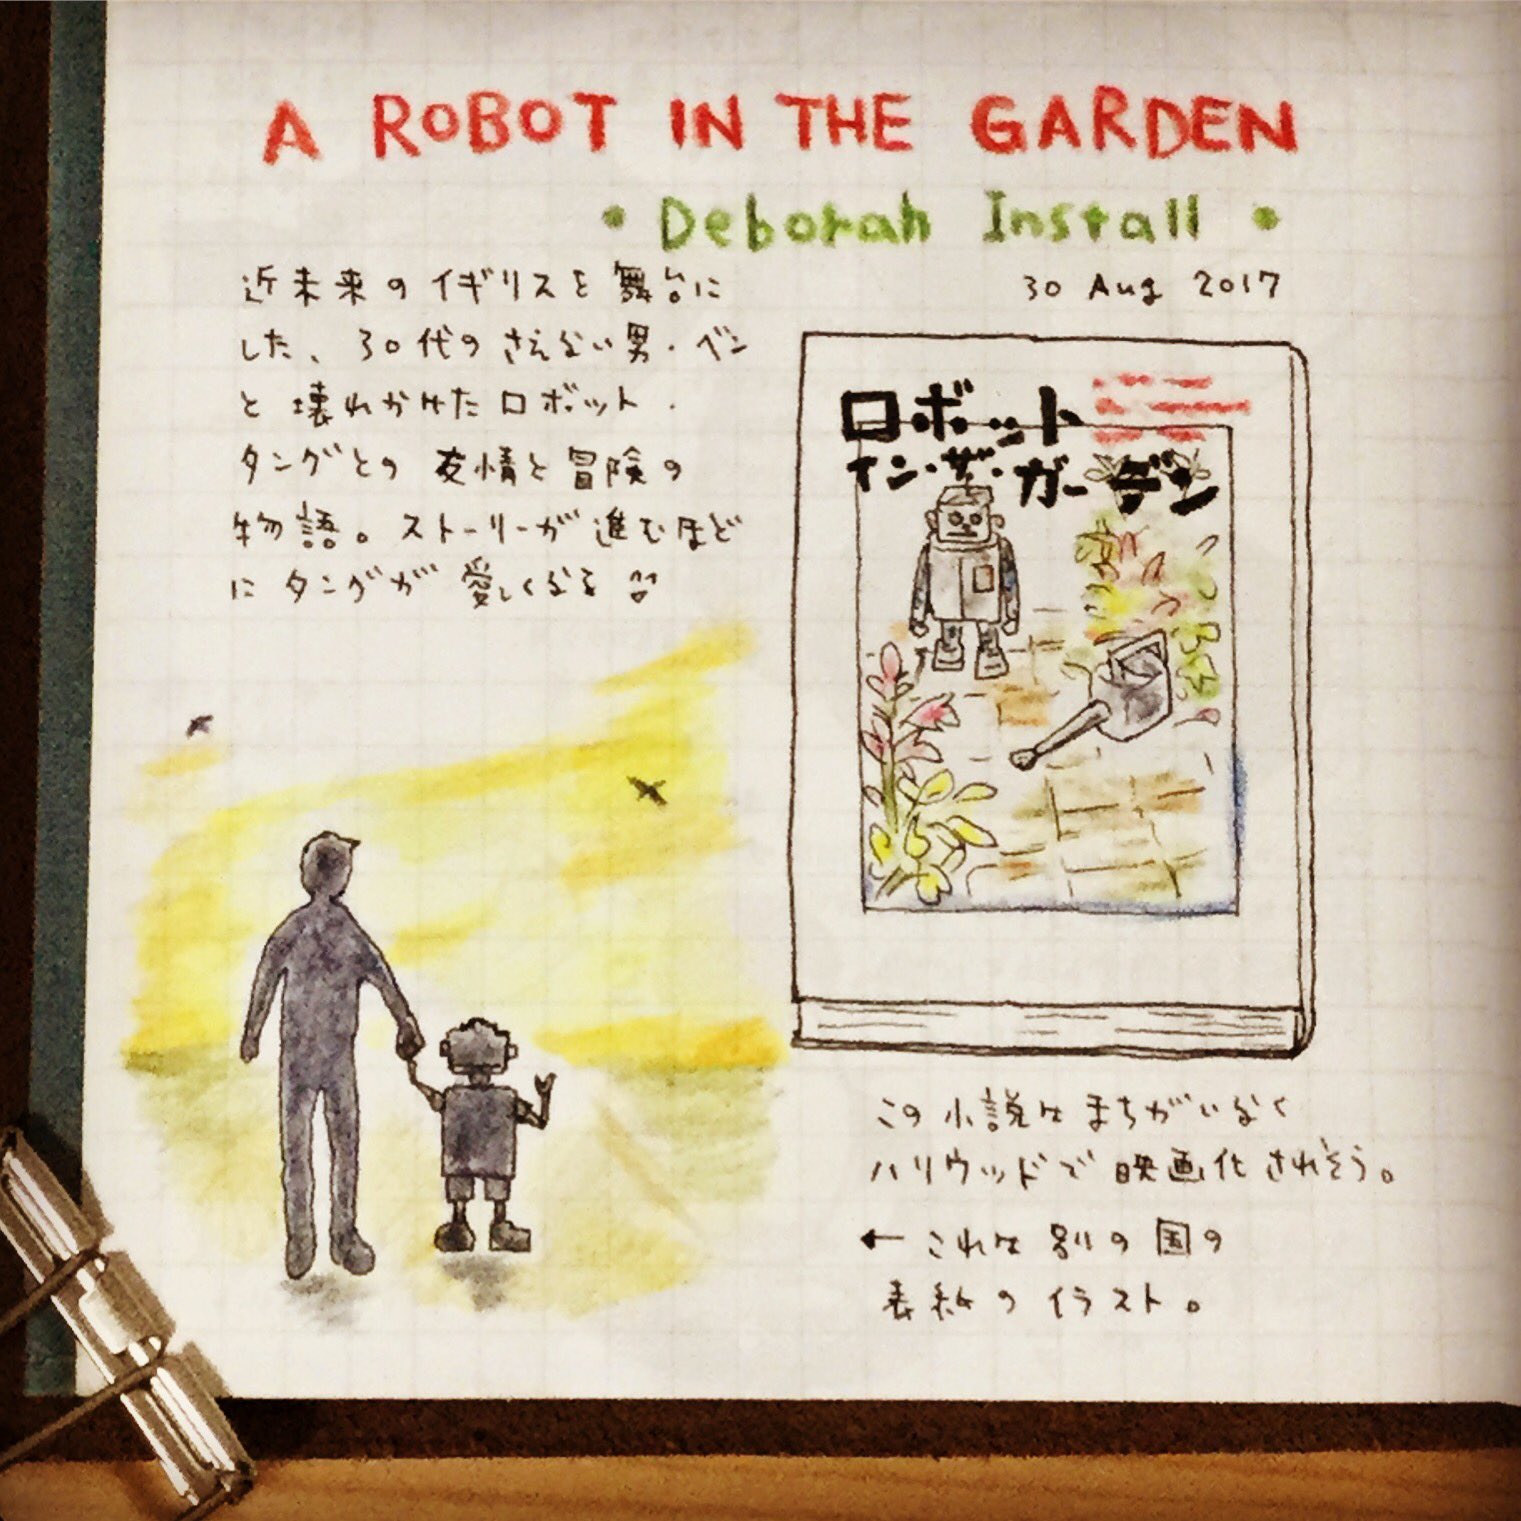 A ROBOT IN THE GARDEN
• Deborah Install •
30 Aug 2017
近未来のイギリスを舞台に
した、30代のさえない男・ベン
と壊れかけたロボット・
タングとの友情と冒険の
物語。ストーリーが進むほど
にタングが愛しくなる
ロボット
イン・ザ・ガーデン
この小説はまちがいなく
ハリウッドで映画化されそう。
← これは別の国の
表紙のイラスト。